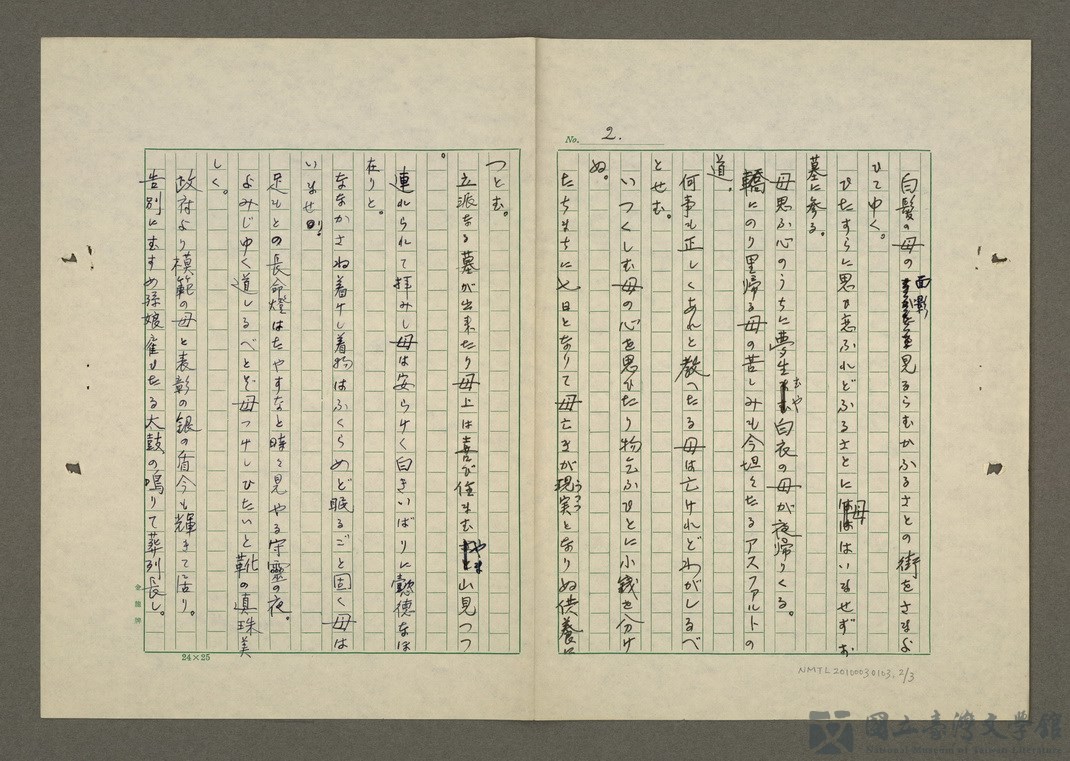 No. 2.
白髪の母の面影見るらむかふるさとの街をさまよ
ひてゆく。
ひたすらに思ひ恋ふれどふるさとに母はいませずお
墓に参る。
母思ふ心のうちに夢生むや白衣の母が夜帰りくる。
轎にのり里帰る母の苦しみも今坦々たるアスファルトの
道。
何事も正しくあれと教へたる母は亡けれどわがしるべ
とせむ。
いつくしむ母の心を思ひたり物乞ふひとに小銭を分け
ぬ。
たちまちに七日となりて母亡きが現実となりぬ供養に
つとむ。
立派なる墓が出来たり母上は喜び住まむやま山見つつ
。
連れられて拝みし母は安らけく白きいばりに懿徳なほ
在りと。
ななかさね着けし着物はふくらめど眠るごと固く母は
いませり。
足もとの長命燈はたやすなと時々見やる守霊の夜。
よみじゆく道しるべとぞ母つけしひたいと靴の真珠美
しく。
政府より模範の母と表彰の銀の盾今も輝きて居り。
告別にむすめ孫娘雇ひたる太鼓の鳴りて葬列長し。
24×25
NMTL20100030103. 2/3
國立臺灣文學館
National Museum of Taiwan Literature